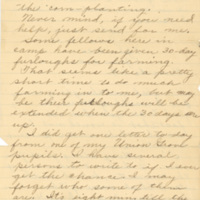 the corn-planting.
Never mind, if you need
help, just send for me.
Some fellows here in
camp have been given 30 day
furloughs for farming.
That seems like a pretty
short time to do much
farming in to me, but may
be their furloughs will be
extended when the 30 days are
up.
I did get one letter to day
from one of my Union Grove
pupils. I have several
persons to write to if I ever
get the chance. I may
forget who some of them
are. It's right much till the